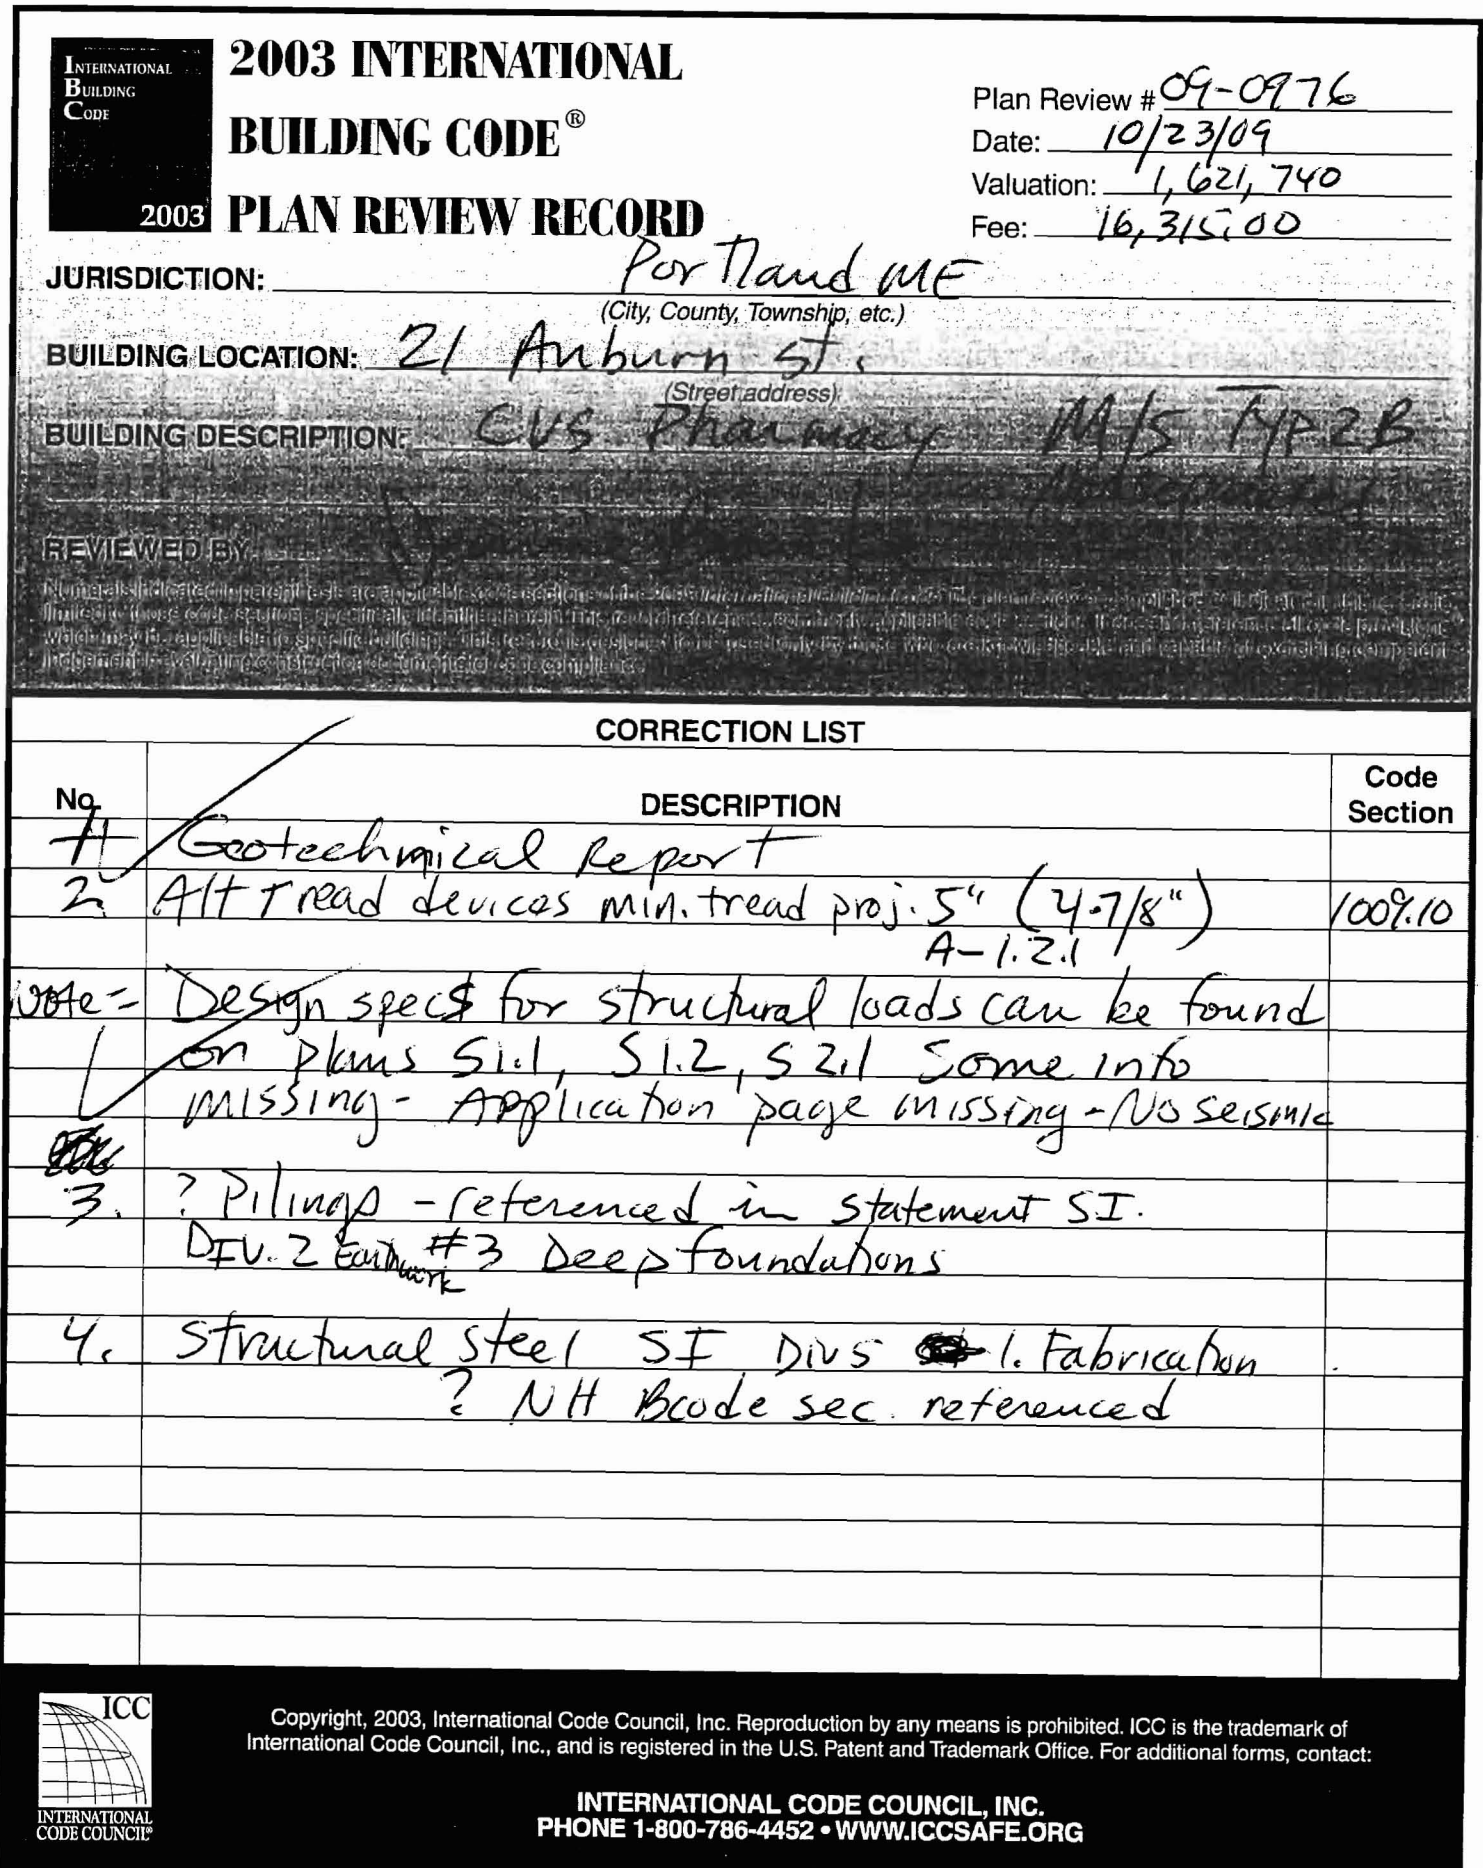 INTERNATIONAL
BUILDING
CODE
2003
2003 INTERNATIONAL
BUILDING CODE®
PLAN REVIEW RECORD
Plan Review # 09-0976
Date: 10/23/09
Valuation: 1,621,740
Fee: 16,315.00
JURISDICTION: Portland ME
(City, County, Township, etc.)
BUILDING LOCATION: 21 Auburn St.
(Street address)
BUILDING DESCRIPTION: CVS Pharmacy M/S Typ 2B
REVIEWED BY:
CORRECTION LIST
No.
DESCRIPTION
Code
Section
1 Geotechnical Report
2. Alt Tread devices min. tread proj. 5" (4-7/8") 1009.10
A-1.2.1
Note = Design specs for structural loads can be found
on plans S1.1, S1.2, S2.1 Some info
missing - Application page missing - No seismic
3. ? Pilings - referenced in statement SI.
DIV. 2 Earthwork #3 Deep foundations
4. Structural Steel SI Div 5 1. Fabrication
? NH Bcode sec. referenced
ICC
INTERNATIONAL
CODE COUNCIL®
Copyright, 2003, International Code Council, Inc. Reproduction by any means is prohibited. ICC is the trademark of
International Code Council, Inc., and is registered in the U.S. Patent and Trademark Office. For additional forms, contact:
INTERNATIONAL CODE COUNCIL, INC.
PHONE 1-800-786-4452 • WWW.ICCSAFE.ORG